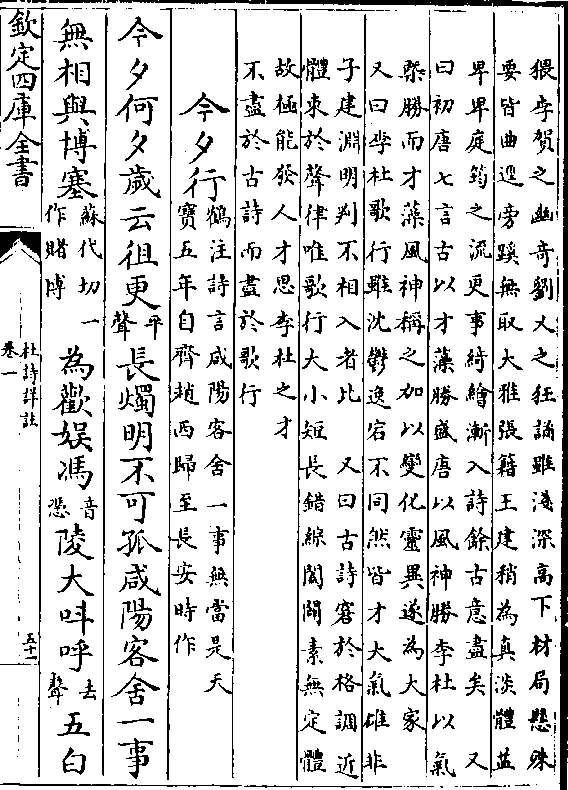 猥李賀之幽奇劉乂之狂譎雖淺深高下材局懸殊
要皆曲逕旁蹊無取大雅張籍王建稍為真淡體益
卑卑庭筠之流更事綺繪漸入詩餘古意盡矣 又
曰初唐七言古以才藻勝盛唐以風神勝李杜以氣
槩勝而才藻風神稱之加以變化靈異遂為大家
又曰李杜歌行雖沈鬱逸宕不同然皆才大氣雄非
子建淵明判不相入者比 又曰古詩窘於格調近
體束於聲律唯歌行大小短長錯綜闔闢素無定體
故極能發人才思李杜之才
不盡於古詩而盡於歌行
今夕行鶴注詩言咸陽客舍一事無當是天
寶五年自齊趙西歸至長安時作
今夕何夕歲云徂更平聲長燭明不可孤咸陽客舍一事
無相與博塞蘇代切一作賭博為歡娛馮音憑陵大呌呼去聲五白
欽定四庫全書
杜詩詳註
卷一
五十一